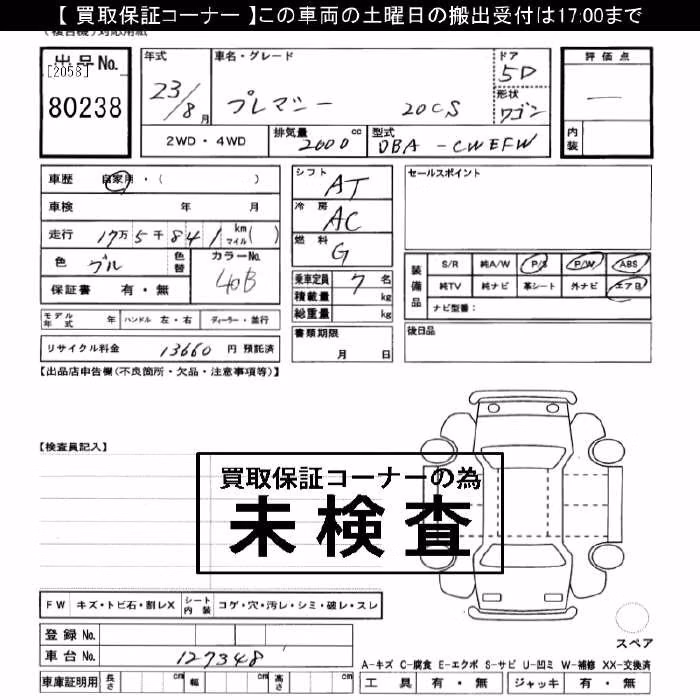 【 買取保証コーナー 】この車両の土曜日の搬出受付は17:00まで
出品No.
[2058]
80238
年式
23/8月
車名・グレード
プレマシー 20CS
ドア
5D
形状
ワゴン
評価点
—
内装
2WD・4WD
排気量 2000 cc
型式 DBA-CWEFW
車歴 自家用・( )
車検 年 月
走行 17万5千841 km マイル( )
色 ブル
色替
カラーNo.
40B
保証書 有・無
シフト
AT
冷房
AC
燃料
G
乗車定員 7名
積載量 kg
総重量 kg
書類期限
月 日
セールスポイント
装備品
S/R 純A/W P/S P/W ABS
純TV 純ナビ 革シート 外ナビ エアB
ナビ型番:
後日品
モデル年式 年 ハンドル 左・右 ディーラー・並行
リサイクル料金 13660 円 預託済
【出品店申告欄(不良箇所・欠品・注意事項等)】
【検査員記入】
買取保証コーナーの為
未検査
FW キズ・トビ石・割レX シート内装 コゲ・穴・汚レ・シミ・破レ・スレ
登録No.
車台No. 127348
車庫証明用 長さ cm 幅 cm 高さ cm
スペア
A-キズ C-腐食 E-エクボ S-サビ U-凹ミ W-補修 XX-交換済
工具 有・無 ジャッキ 有・無